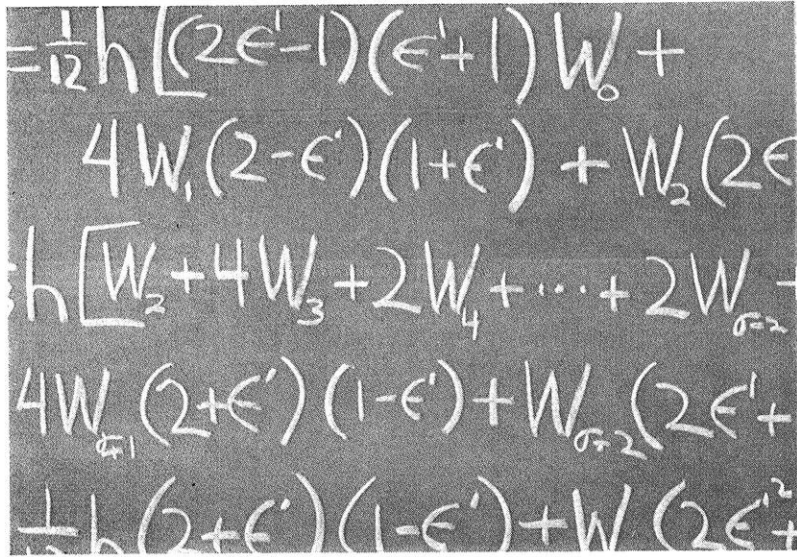 = 1/12 h [(2ϵ'-1)(ϵ'+1) W₀ +
4W₁(2-ϵ')(1+ϵ') + W₂(2ϵ
h[W₂ + 4W₃ + 2W₄ + ··· + 2W_σ-2
4W_σ-1 (2+ϵ')(1-ϵ') + W_σ-2 (2ϵ' +
h(2+ϵ')(1-ϵ') + W (2ϵ'² +